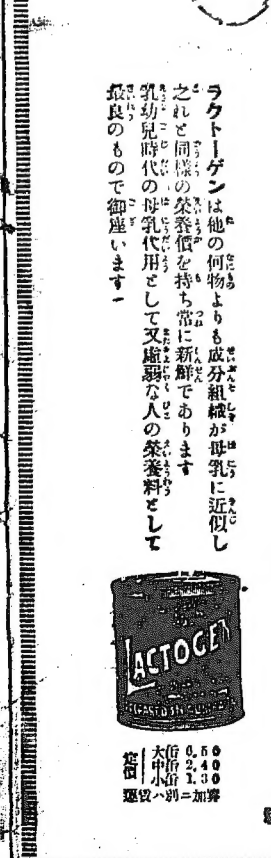 ラクトーゲンは他の何物よりも成分組織が母乳に近似し
之れと同様の栄養價を持ち常に新鮮であります
乳幼兒時代の母乳代用として又虚弱な人の栄養料として
最良のもので御座います
LACTOGEN
定價
大缶
中缶
小缶